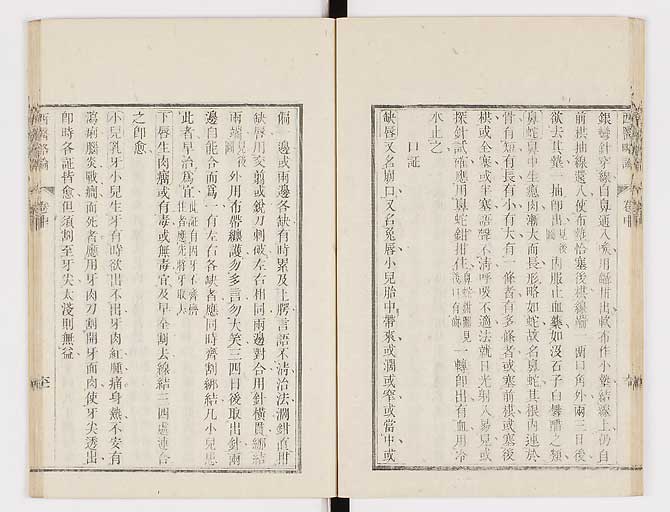 銀彎針穿線自鼻通入喉用鉗扯出軟布作小墊結線上仍自
前棋抽線還入使布墊恰塞後棋線端 兩口角外兩三日後
欲去其墊一抽卽出見後圖 內服止血藥如沒石子白礬醋之類
鼻蛇鼻中生瘜肉漸大而長形略如蛇故名鼻蛇其根內連於
骨有短有長有小有大有一條者有多條者或塞前棋或塞後
棋或全塞或半塞語聲不清呼吸不適法就日光射入易見或
探針試確應用鼻蛇鉗扯住 一轉卽出有血用冷
水止之
口証
缺唇又名崩口又名兔唇小兒胎中帶來或濶或窄或當中或
偏一邊或兩邊各缺有時累及上腭言語不清治法濶鉗直鉗
缺唇用交剪或銳刀刺破左右相同兩邊對合用針橫貫綁結
兩端見後圖 外用布帶纏護勿多言勿大笑三四日後取出針兩
邊自能合而爲一有左右各缺者應同時齊割綁結凡小兒患
此者早治爲宜此証自因牙不齊擠生者應先將牙取去
下唇生肉癅或有毒或無毒宜及早全割去線結三四處連合
之卽愈
小兒乳牙小兒生牙有時欲出不出牙肉紅腫痛身熱不安有
瀉痢腦炎戰癎而死者應用牙肉刀割開牙面肉使牙尖透出
卽時各証皆愈但須割至牙尖太淺則無益
西醫略論
卷中